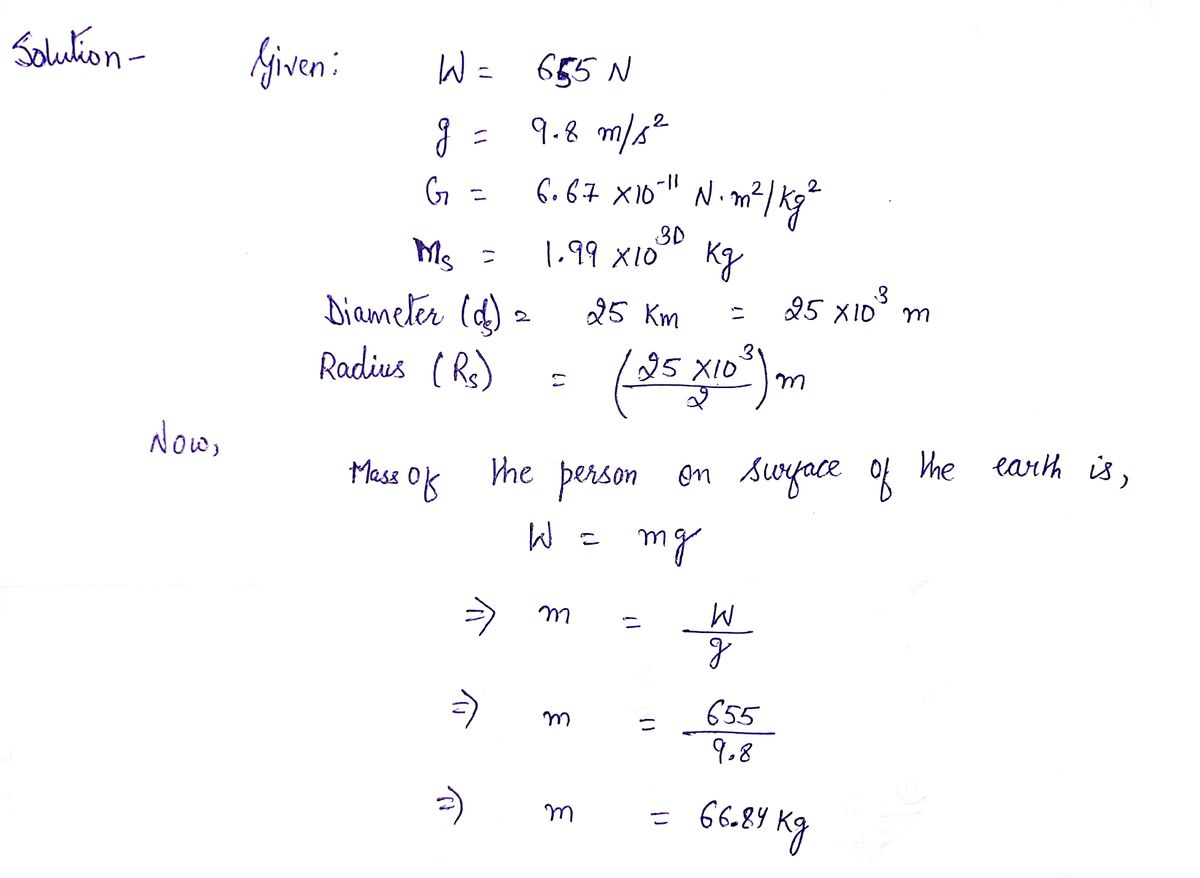 Solution - Given: W = 655 N
g = 9.8 m/s²
G = 6.67 ×10⁻¹¹ N·m²/Kg²
Ms = 1.99 ×10³⁰ Kg
Diameter (ds) = 25 Km = 25 ×10³ m
Radius (Rs) = (25 ×10³/2) m
Now,
Mass of the person on surface of the earth is,
W = mg
⇒ m = W/g
⇒ m = 655/9.8
⇒ m = 66.84 Kg